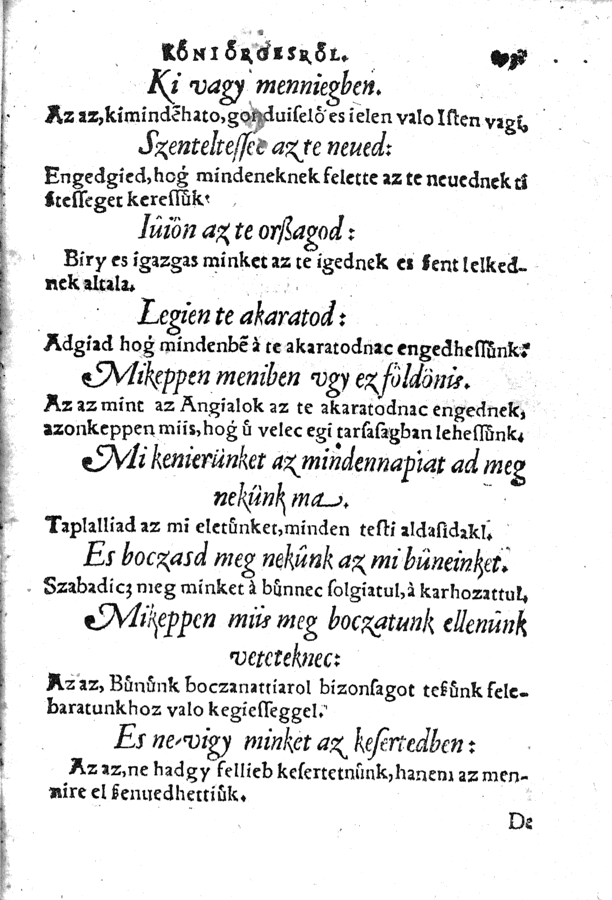 KŐNIŐRGESRŐL.
Ki vagy menniegben.
Az az, kimindēhato, gonduiselő es ielen valo Isten vagi,
Szenteltessec az te neued:
Engedgied, hoǵ mindeneknek felette az te neuednek ti
stesseget keressůk.
Iůiön az te orßagod:
Biry es igazgas minket az te igednek es sent lelked-
nek altala.
Legien te akaratod:
Adgiad hoǵ mindenbē à te akaratodnac engedhessůnk:
Mikeppen meniben vgy ez földönis.
Az az mint az Angialok az te akaratodnac engednek,
azonkeppen miis, hoǵ ů velec egi tarsasagban lehessůnk.
Mi kenierünket az mindennapiat ad meg
nekůnk ma.
Taplalliad az mi eletůnket, minden testi aldasidakl.
Es boczasd meg nekůnk az mi bůneinket.
Szabadicz meg minket à bůnnec solgiatul, à karhozattul,
Mikeppen miis meg boczatunk ellenůnk
veteteknec:
Az az, Bůnůnk boczanattiarol bizonsagot tesůnk fele-
baratunkhoz valo kegiesseggel.
Es ne vigy minket az kesertedben:
Az az, ne hadgy fellieb kesertetnůnk, hanem az men-
nire el senuedhettiůk.
De